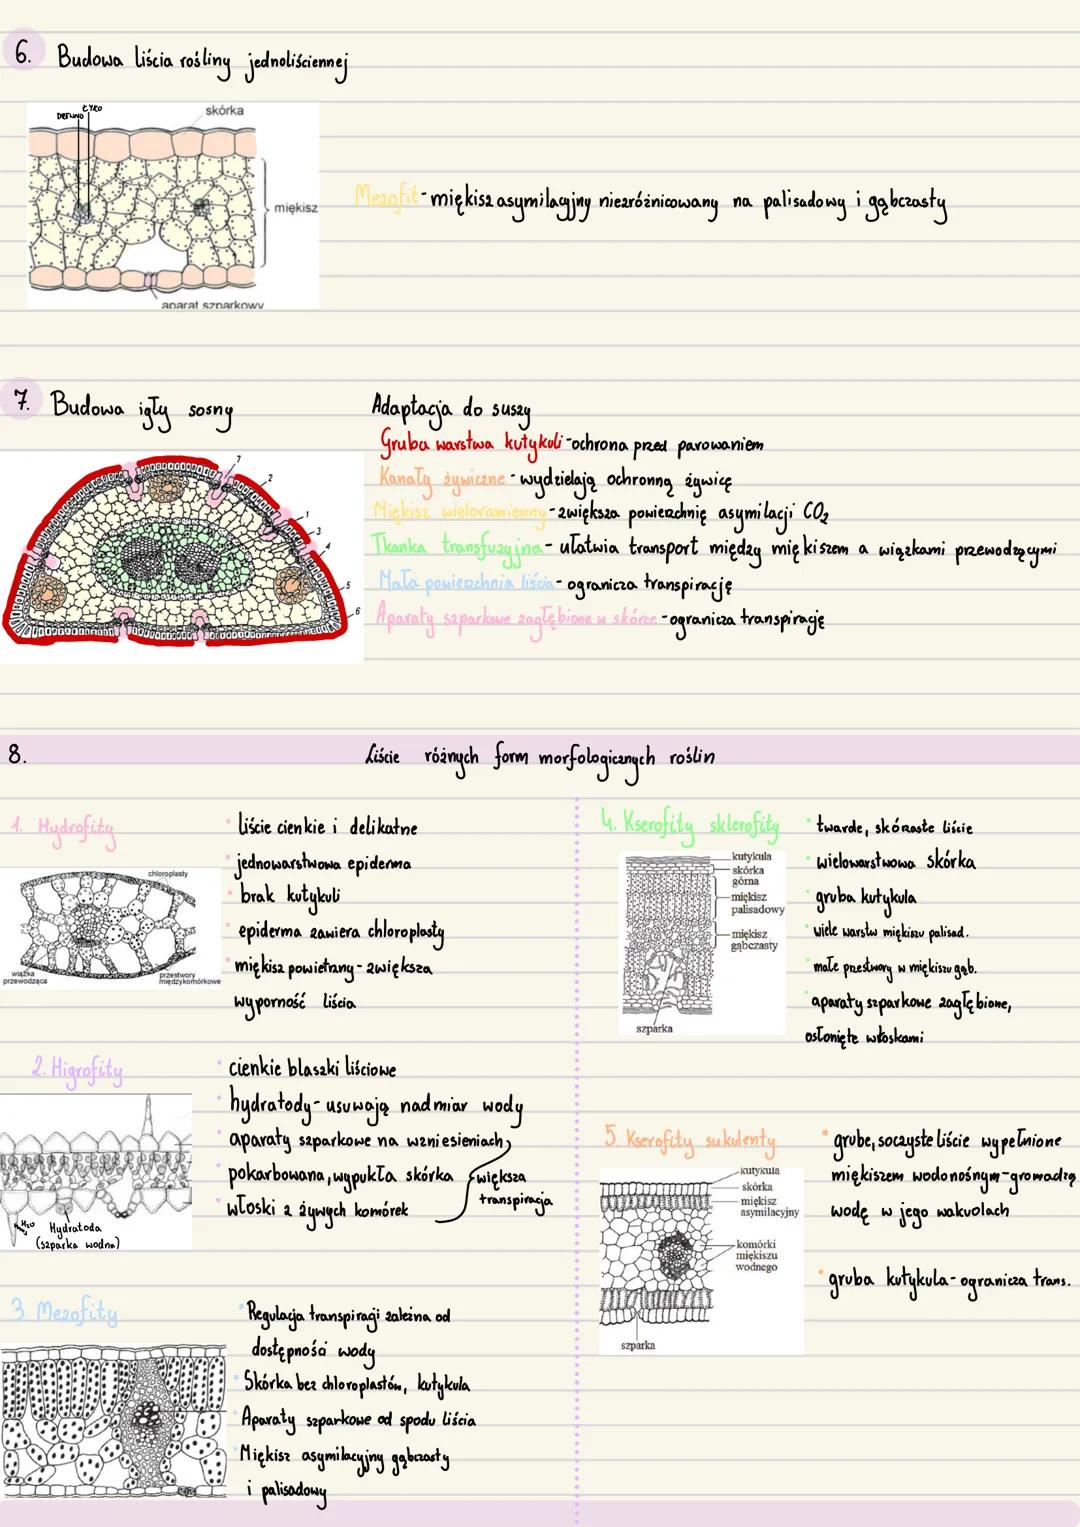 6. Budowa liścia rośliny jednoliściennej
DREWNO
ŁYKO
skórka
miękisz
aparat szparkowy
Mezofit - miękisz asymilacyjny niezróżnicowany na palisadowy i gąbczasty
7. Budowa igły sosny
7
2
1
3
4
5
6
Adaptacja do suszy
Gruba warstwa kutykuli - ochrona przed parowaniem
Kanały żywiczne - wydzielają ochronną żywicę
Miękisz wieloramienny - zwiększa powierzchnię asymilacji CO2
Tkanka transfuzyjna - ułatwia transport między miękiszem a wiązkami przewodzącymi
Mała powierzchnia liścia - ogranicza transpirację
Aparaty szparkowe zagłębione w skórce - ogranicza transpirację
8. Liście różnych form morfologicznych roślin
1. Hydrofity
chloroplasty
wiązka przewodząca
przestwory międzykomórkowe
liście cienkie i delikatne
jednowarstwowa epiderma
brak kutykuli
epiderma zawiera chloroplasty
miękisz powietrzny - zwiększa
wyporność liścia
2. Higrofity
H2O
Hydratoda
(szparka wodna)
cienkie blaszki liściowe
hydratody - usuwają nadmiar wody
aparaty szparkowe na wzniesieniach
pokarbowana, wypukła skórka
włoski z żywych komórek
większa
transpiracja
3 Mezofity
Regulacja transpiracji zależna od
dostępności wody
Skórka bez chloroplastów, kutykula
Aparaty szparkowe od spodu liścia
Miękisz asymilacyjny gąbczasty
i palisadowy
4. Kserofity sklerofity
kutykula
skórka
górna
miękisz
palisadowy
miękisz
gąbczasty
szparka
twarde, skórzaste liście
wielowarstwowa skórka
gruba kutykula
wiele warstw miękiszu palisad.
małe przestwory w miękiszu gąb.
aparaty szparkowe zagłębione,
osłonięte włoskami
5. Kserofity sukulenty
kutykula
skórka
miękisz
asymilacyjny
komórki
miękiszu
wodnego
szparka
grube, soczyste liście wypełnione
miękiszem wodonośnym - gromadzą
wodę w jego wakuolach
gruba kutykula - ogranicza trans.